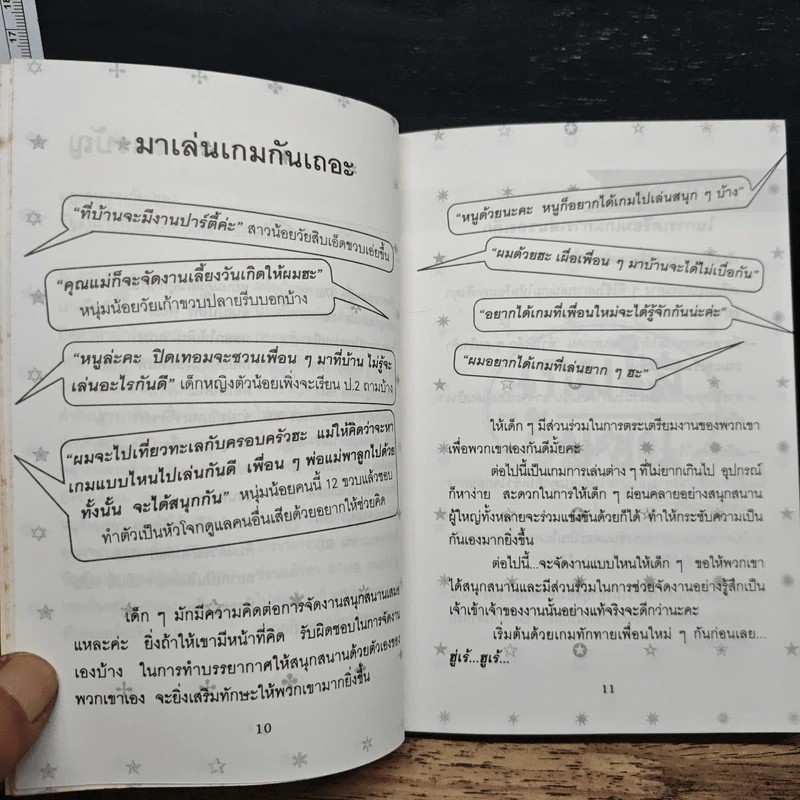 มาเล่นเกมกันเถอะ
“ที่บ้านจะมีงานปาร์ตี้ค่ะ” สาวน้อยวัยสิบเอ็ดขวบเอ่ยขึ้น
“คุณแม่ก็จะจัดงานเลี้ยงวันเกิดให้ผมฮะ”
หนุ่มน้อยวัยเก้าขวบปลายรีบบอกบ้าง
“หนูล่ะคะ ปิดเทอมจะชวนเพื่อน ๆ มาที่บ้าน ไม่รู้จะ
เล่นอะไรกันดี” เด็กหญิงตัวน้อยเพิ่งจะเรียน ป.2 ถามบ้าง
“ผมจะไปเที่ยวทะเลกับครอบครัวฮะ แม่ให้คิดว่าจะหา
เกมแบบไหนไปเล่นกันดี เพื่อน ๆ พ่อแม่พาลูกไปด้วย
ทั้งนั้น จะได้สนุกกัน” หนุ่มน้อยคนนี้ 12 ขวบแล้วชอบ
ทำตัวเป็นหัวโจกดูแลคนอื่นเสียด้วยอยากให้ช่วยคิด
เด็ก ๆ มักมีความคิดต่อการจัดงานสนุกสนานเสมอ
แหละค่ะ ยิ่งถ้าให้เขามีหน้าที่คิด รับผิดชอบในการจัดงาน
เองบ้าง ในการทำบรรยากาศให้สนุกสนานด้วยตัวเองของ
พวกเขาเอง จะยิ่งเสริมทักษะให้พวกเขามากยิ่งขึ้น
10
“หนูด้วยนะคะ หนูก็อยากได้เกมไปเล่นสนุก ๆ บ้าง”
“ผมด้วยฮะ เผื่อเพื่อน ๆ มาบ้านจะได้ไม่เบื่อกัน”
“อยากได้เกมที่เพื่อนใหม่จะได้รู้จักกันน่ะค่ะ”
“ผมอยากได้เกมที่เล่นยาก ๆ ฮะ”
ให้เด็ก ๆ มีส่วนร่วมในการตระเตรียมงานของพวกเขา
เพื่อพวกเขาเองกันดีมั้ยคะ
ต่อไปนี้เป็นเกมการเล่นต่าง ๆ ที่ไม่ยากเกินไป อุปกรณ์
ก็หาง่าย สะดวกในการให้เด็ก ๆ ผ่อนคลายอย่างสนุกสนาน
ผู้ใหญ่ทั้งหลายจะร่วมแข่งขันด้วยก็ได้ ทำให้กระชับความเป็น
กันเองมากยิ่งขึ้น
ต่อไปนี้...จะจัดงานแบบไหนให้เด็ก ๆ ขอให้พวกเขา
ได้สนุกสนานและมีส่วนร่วมในการช่วยจัดงานอย่างรู้สึกเป็น
เจ้าเข้าเจ้าของงานนั้นอย่างแท้จริงจะดีกว่านะคะ
เริ่มต้นด้วยเกมทักทายเพื่อนใหม่ ๆ กันก่อนเลย...
ฮู่เร้...ฮูเร้...
11
17
18